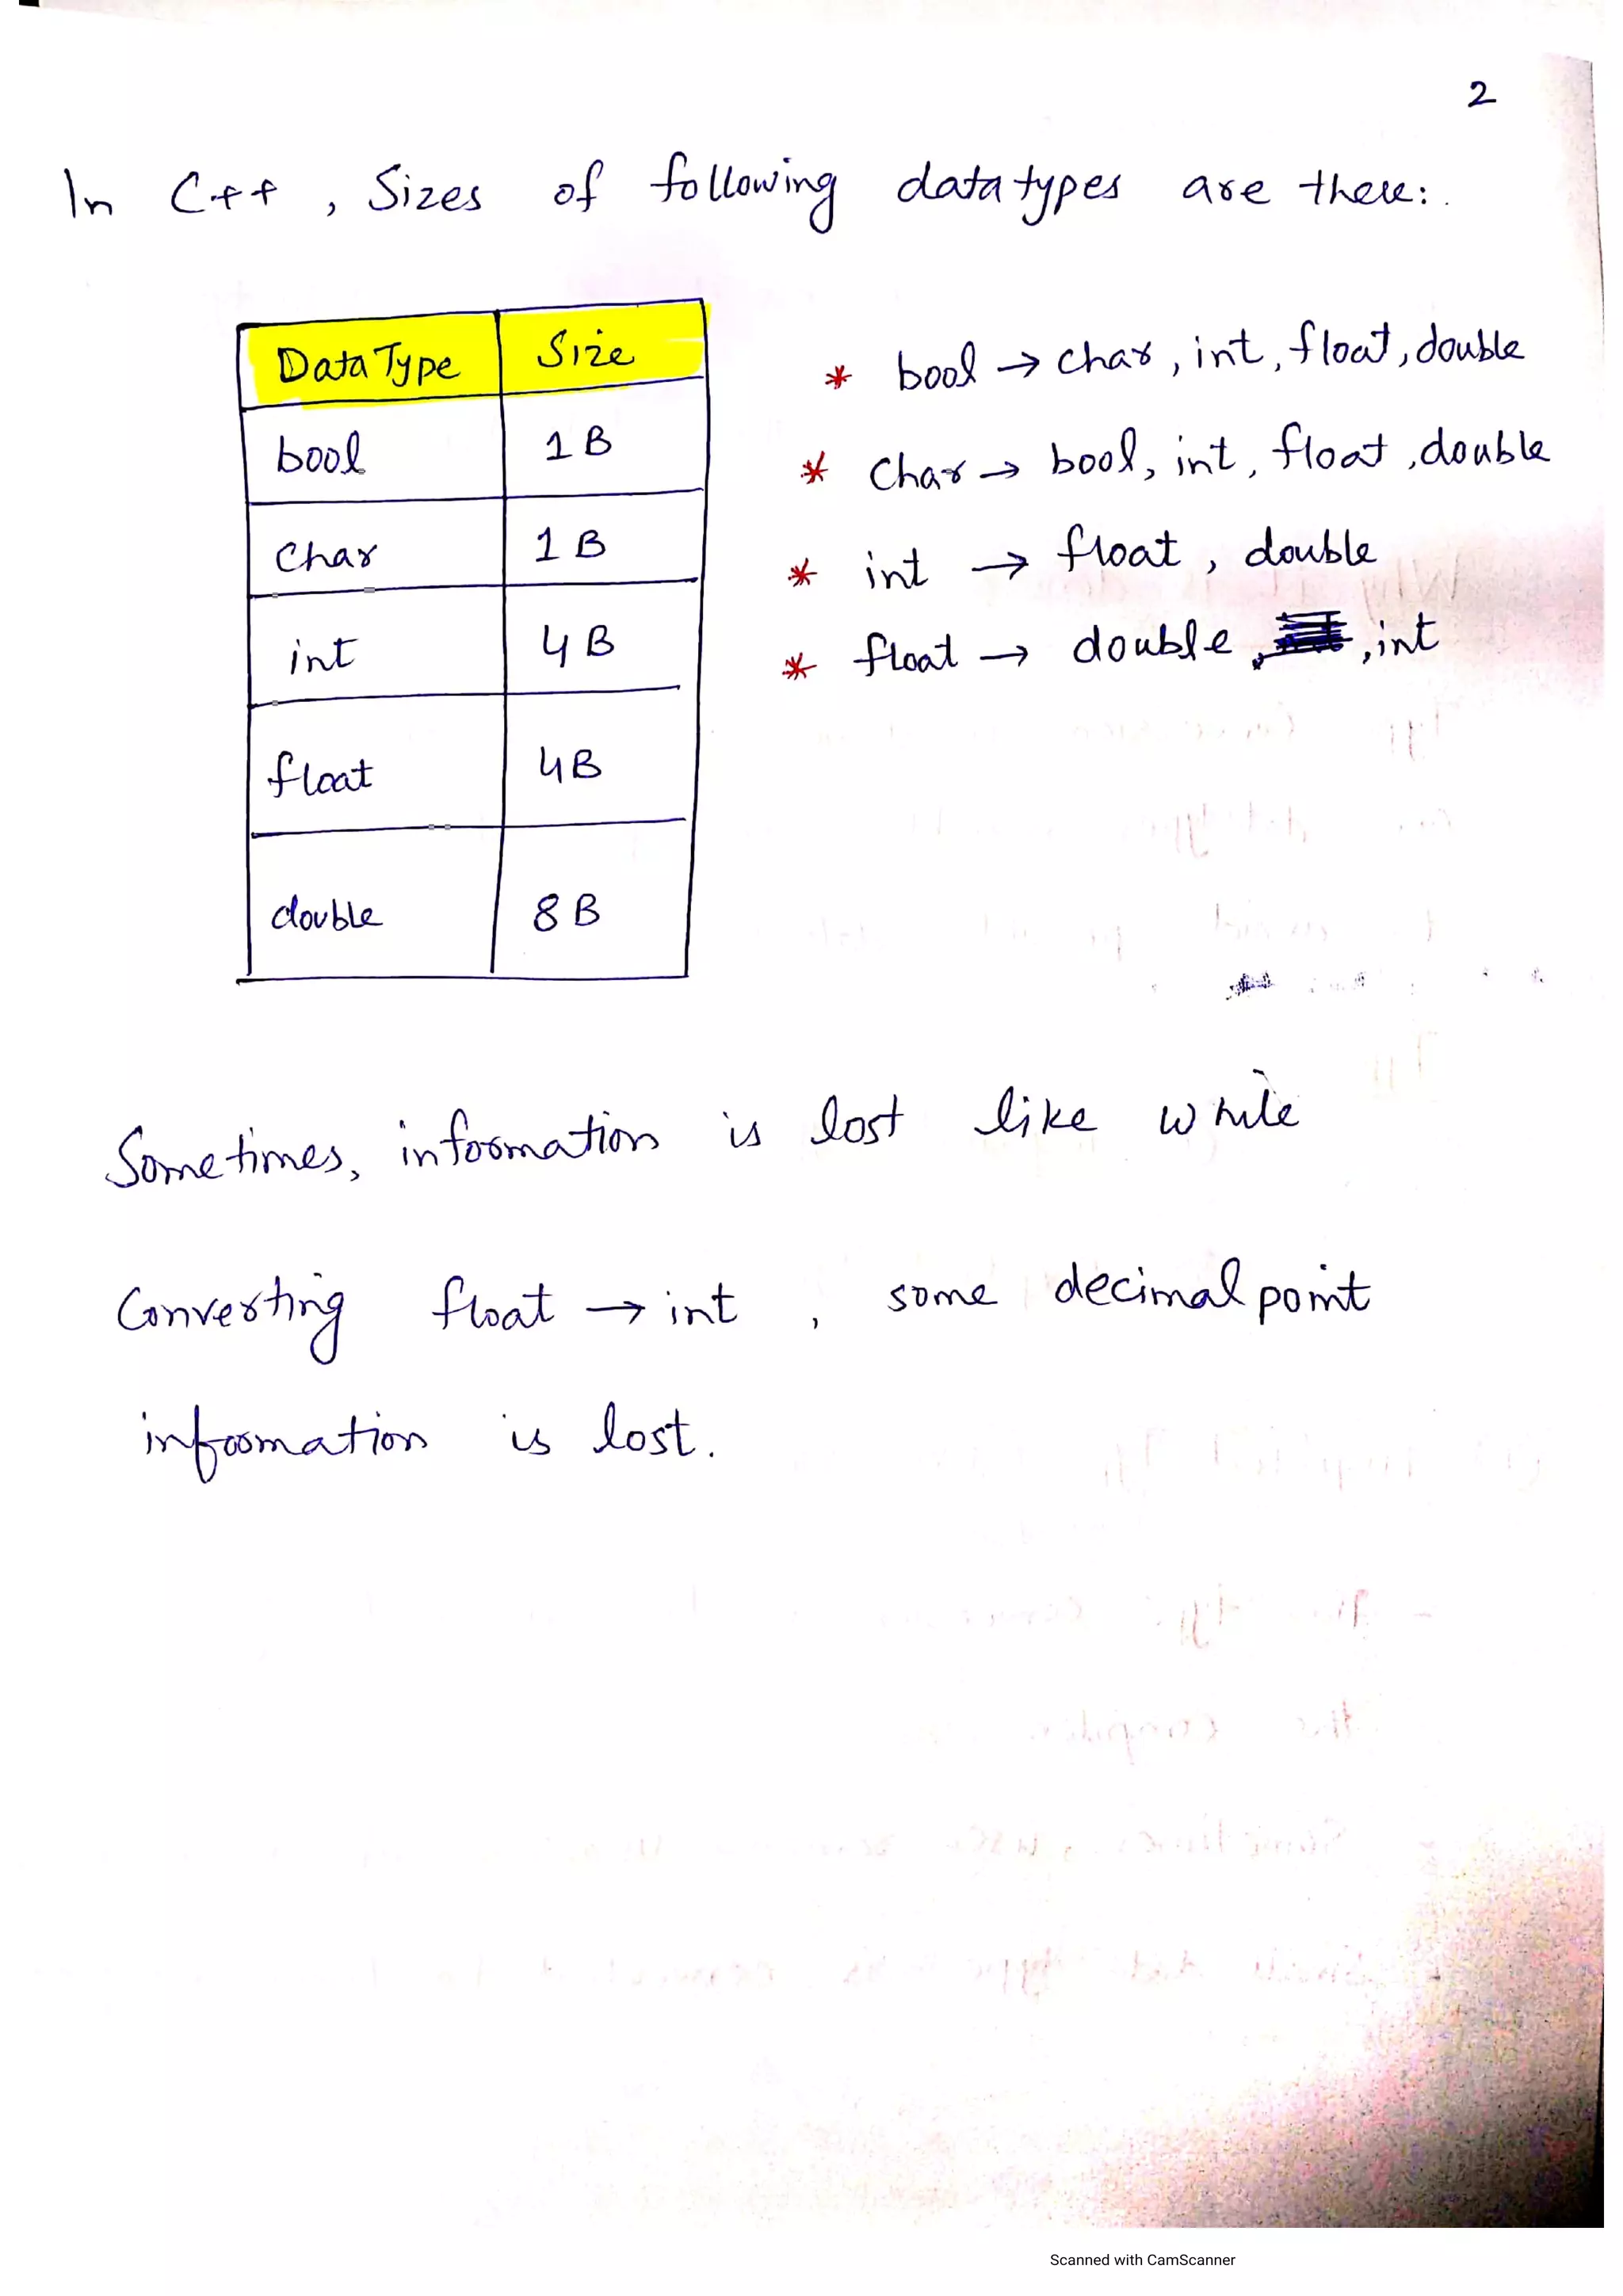 2
In C++, Sizes of following data types are there:
Data Type Size
bool 1 B
Char 1 B
int 4 B
float 4B
double 8 B
* bool → char, int, float, double
* Char → bool, int, float, double
* int → float, double
* float → double, int
Sometimes, information is lost like while
Converting float → int, some decimal point
information is lost.
Scanned with CamScanner